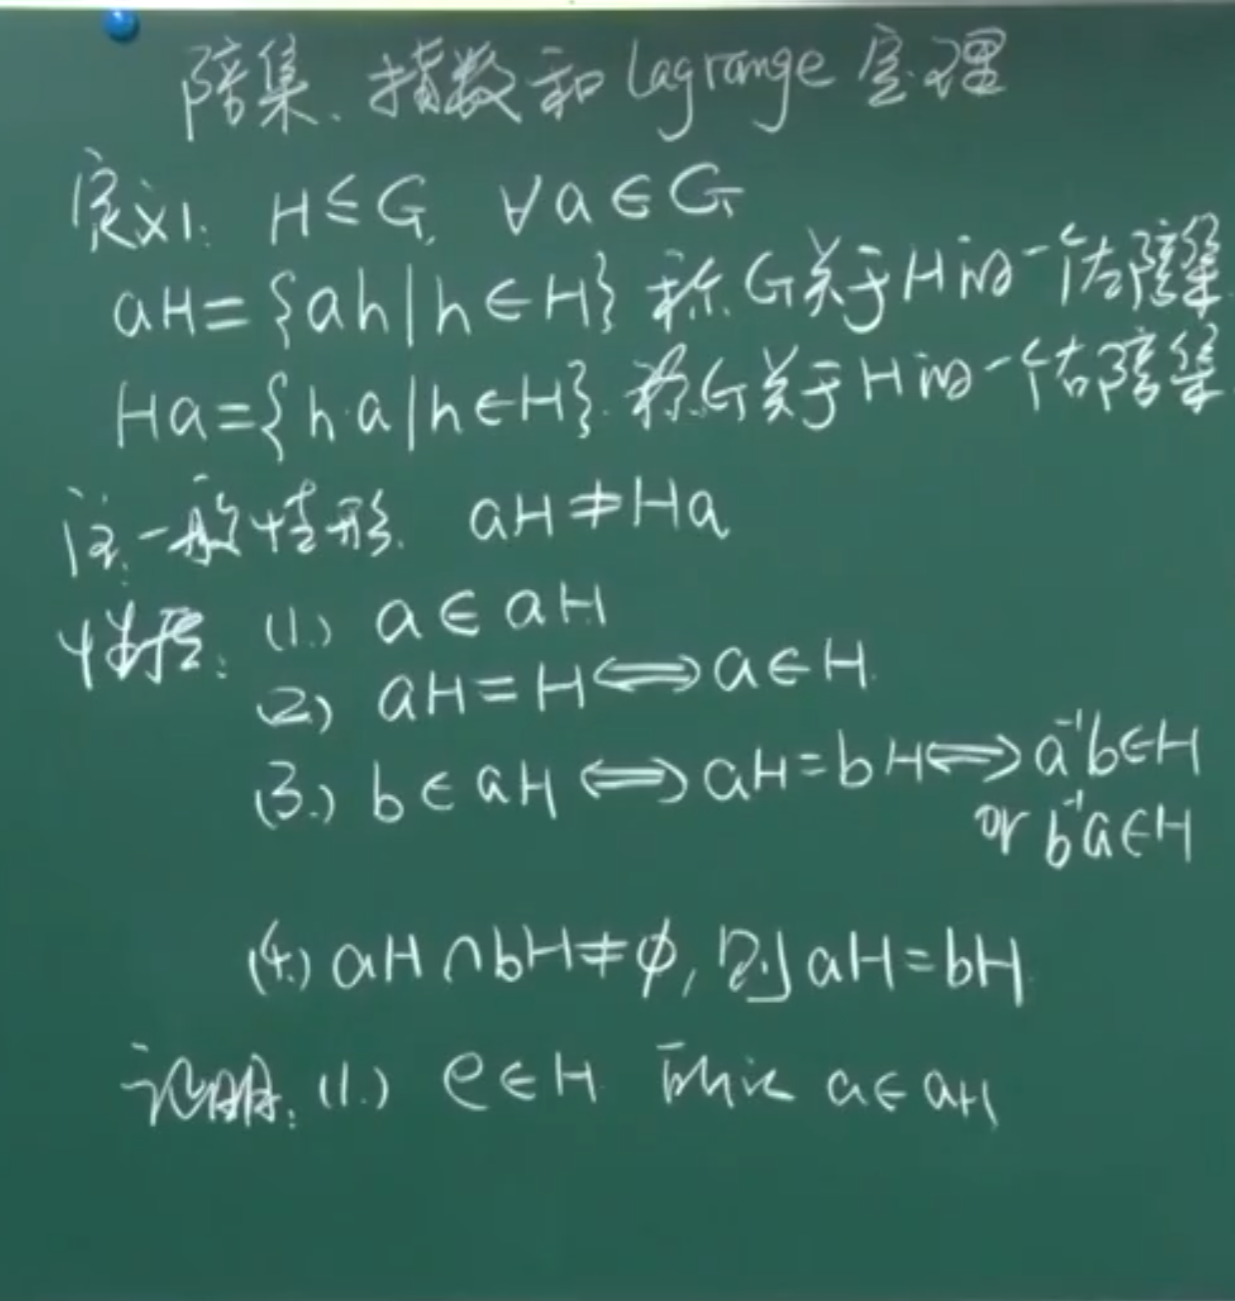 陪集、指数和Lagrange定理
定义1: H≤G, ∀a∈G
aH={ah|h∈H} 称G关于H的一个左陪集
Ha={h·a|h∈H}. 称G关于H的一个右陪集
注: 一般情形. aH≠Ha
性质: (1.) a∈aH
(2) aH=H⟺a∈H.
(3.) b∈aH⟺aH=bH⟺a⁻¹b∈H
or b⁻¹a∈H
(4.) aH∩bH≠ϕ, 则aH=bH.
证明: (1.) e∈H 所以 a∈aH